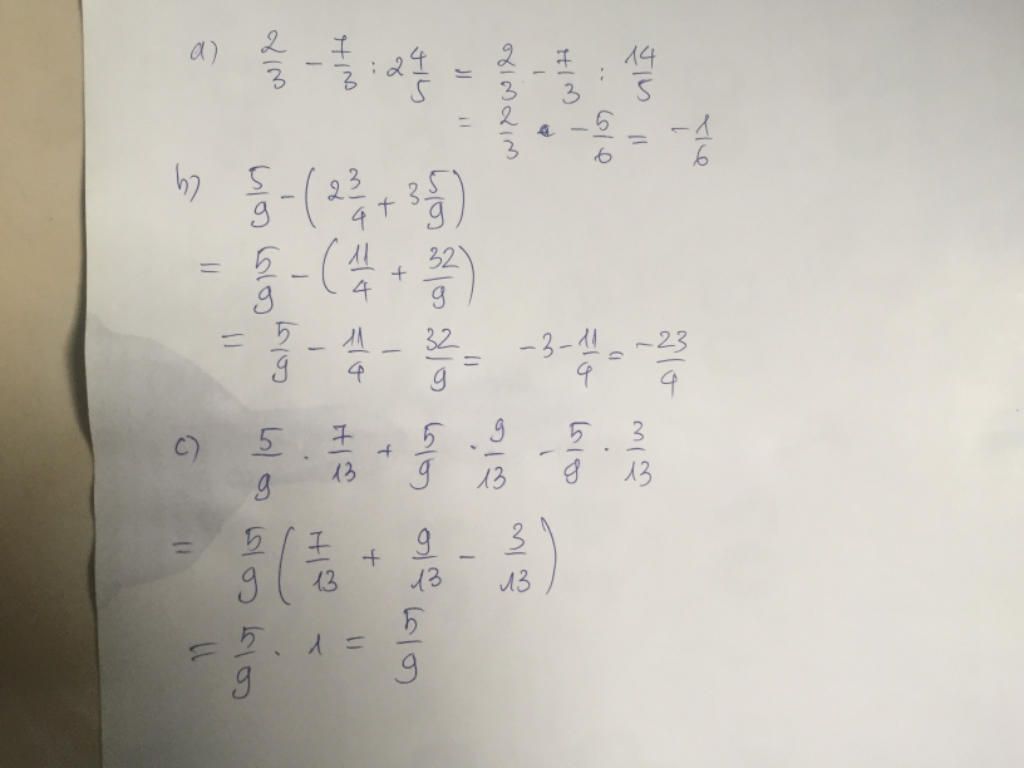 a) 2/3 - 7/3 : 2 4/5 = 2/3 - 7/3 : 14/5
= 2/3 - 5/6 = -1/6
b) 5/9 - (2 3/4 + 3 5/9)
= 5/9 - (11/4 + 32/9)
= 5/9 - 11/4 - 32/9 = -3 - 11/4 = -23/4
c) 5/9 . 7/13 + 5/9 . 9/13 - 5/9 . 3/13
= 5/9 (7/13 + 9/13 - 3/13)
= 5/9 . 1 = 5/9